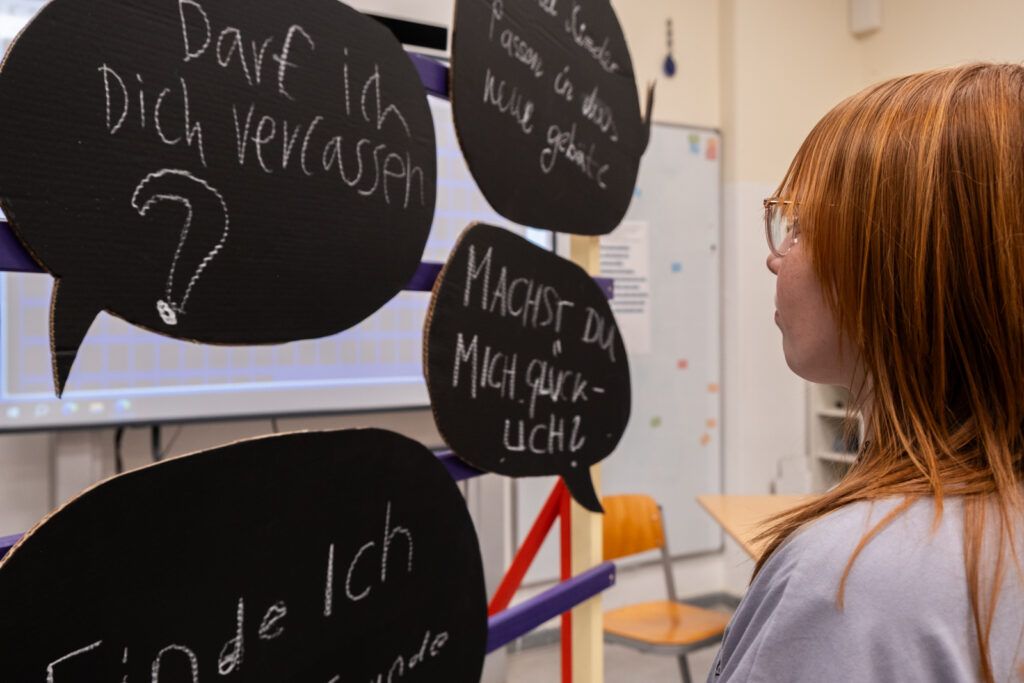 Darf ich
Dich vercassen
?
Kinder
passen in das
neue gebäute
MACHST DU
MICH glÜCK-
LICH?
Finde Ich
Freunde